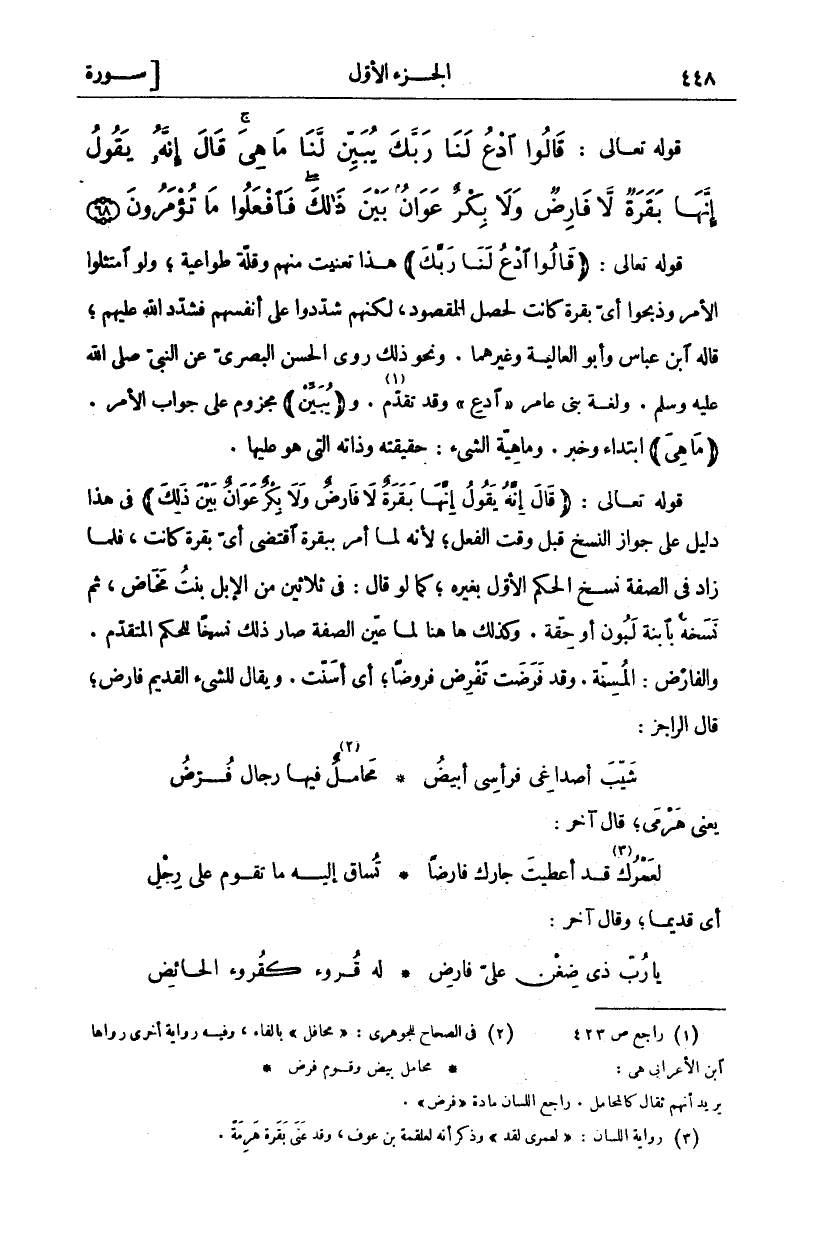 ٤٤٨ الجـزء الأوّل [ ســورة
قوله تعـالى : قَالُوا ٱدْعُ لَنَا رَبَّكَ يُبَيِّن لَّنَا مَا هِىَ ۚ قَالَ إِنَّهُۥ يَقُولُ
إِنَّهَا بَقَرَةٌ لَّا فَارِضٌ وَلَا بِكْرٌ عَوَانٌۢ بَيْنَ ذَٰلِكَ ۖ فَٱفْعَلُوا مَا تُؤْمَرُونَ ٦٨
قوله تعالى : ﴿ قَالُوا ٱدْعُ لَنَـا رَبَّكَ ﴾ هـذا تعنيت منهم وقلّة طواعية ؛ ولو آمتثلوا
الأمر وذبحوا أىّ بقرة كانت لحصل المقصود، لكنهم شدّدوا على أنفسهم فشدّد الله عليهم ؛
قاله آبن عباس وأبو العاليـة وغيرهما . ونحو ذلك روى الحسن البصرىّ عن النبىّ صلى الله
عليه وسلم . ولغـة بنى عامر « آدعِ » وقد تقدّم (١) . و ﴿ يُبَيِّنْ ﴾ مجزوم على جواب الأمر .
﴿ مَا هِىَ ﴾ ابتداء وخبر . وماهيّة الشىء : حقيقته وذاته التى هو عليها .
قوله تعـالى : ﴿ قَالَ إِنَّهُ يَقُولُ إِنَّهَـا بَقَرَةٌ لَا فَارِضٌ وَلَا بِكْرٌ عَوَانٌ بَيْنَ ذَلِكَ ﴾ فى هذا
دليل على جواز النسخ قبل وقت الفعل؛ لأنه لمـا أمر ببقرة آقتضى أىّ بقرة كانت ، فلمـا
زاد فى الصفة نسـخ الحكم الأوّل بغيره ؛ كما لو قال : فى ثلاثين من الإبل بنتُ مَخَاض ، ثم
نَسَخه بآبنة لَبُون أو حِقّة . وكذلك ها هنا لمـا عيّن الصفة صار ذلك نسخًا للحكم المتقدّم .
والفارِض : المُسِنّة . وقد فَرَضَت تَفْرِض فروضًا؛ أى أسَنّت . ويقال للشىء القديم فارض؛
قال الراجز :
شَيّبَ أصداغِى فرأسِى أبيضُ * مَحَامِلٌ (٢) فيهـا رجال فُـرّضُ
يعنى هَرْمَى؛ قال آخر :
لَعَمْرُكَ (٣) قـد أعطيتَ جارك فارضًا * تُساق إليـه ما تقوم على رِجْلِ
أى قديمـا؛ وقال آخر :
يا رُبّ ذى ضِغْنٍ علىّ فارِضِ * له قُـروء كقُروء الحـائضِ
(١) راجع ص ٤٢٣ (٢) فى الصحاح للجوهرى : « محافل » بالفاء ، وفيـه رواية أخرى رواها
آبن الأعرابى هى : * محامل بيض وقـوم فرض *
يريد أنهم ثقال كالمحامل . راجع اللسان مادة «فرض» .
(٣) رواية اللسان : « لعمرى لقد » وذكر أنه لعلقمة بن عوف ، وقد عَنَى بَقَرة هَرِمَةً .